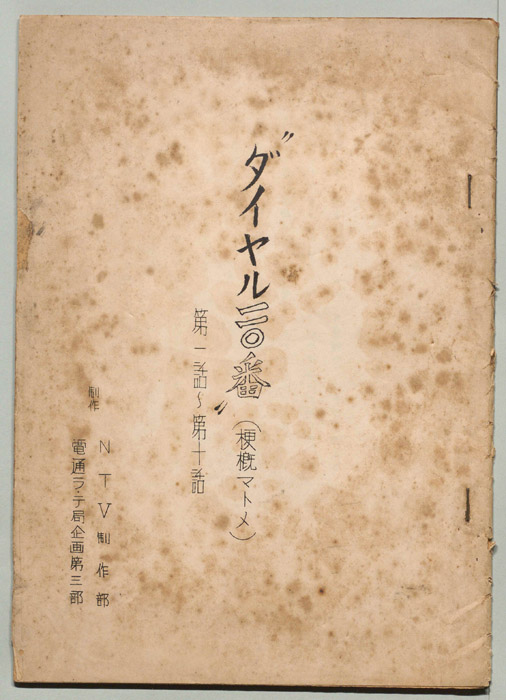 〝ダイヤル一一〇番〟(梗概マトメ)
第一話~第十話
制作 NTV制作部
電通ラ・テ局企画第三部